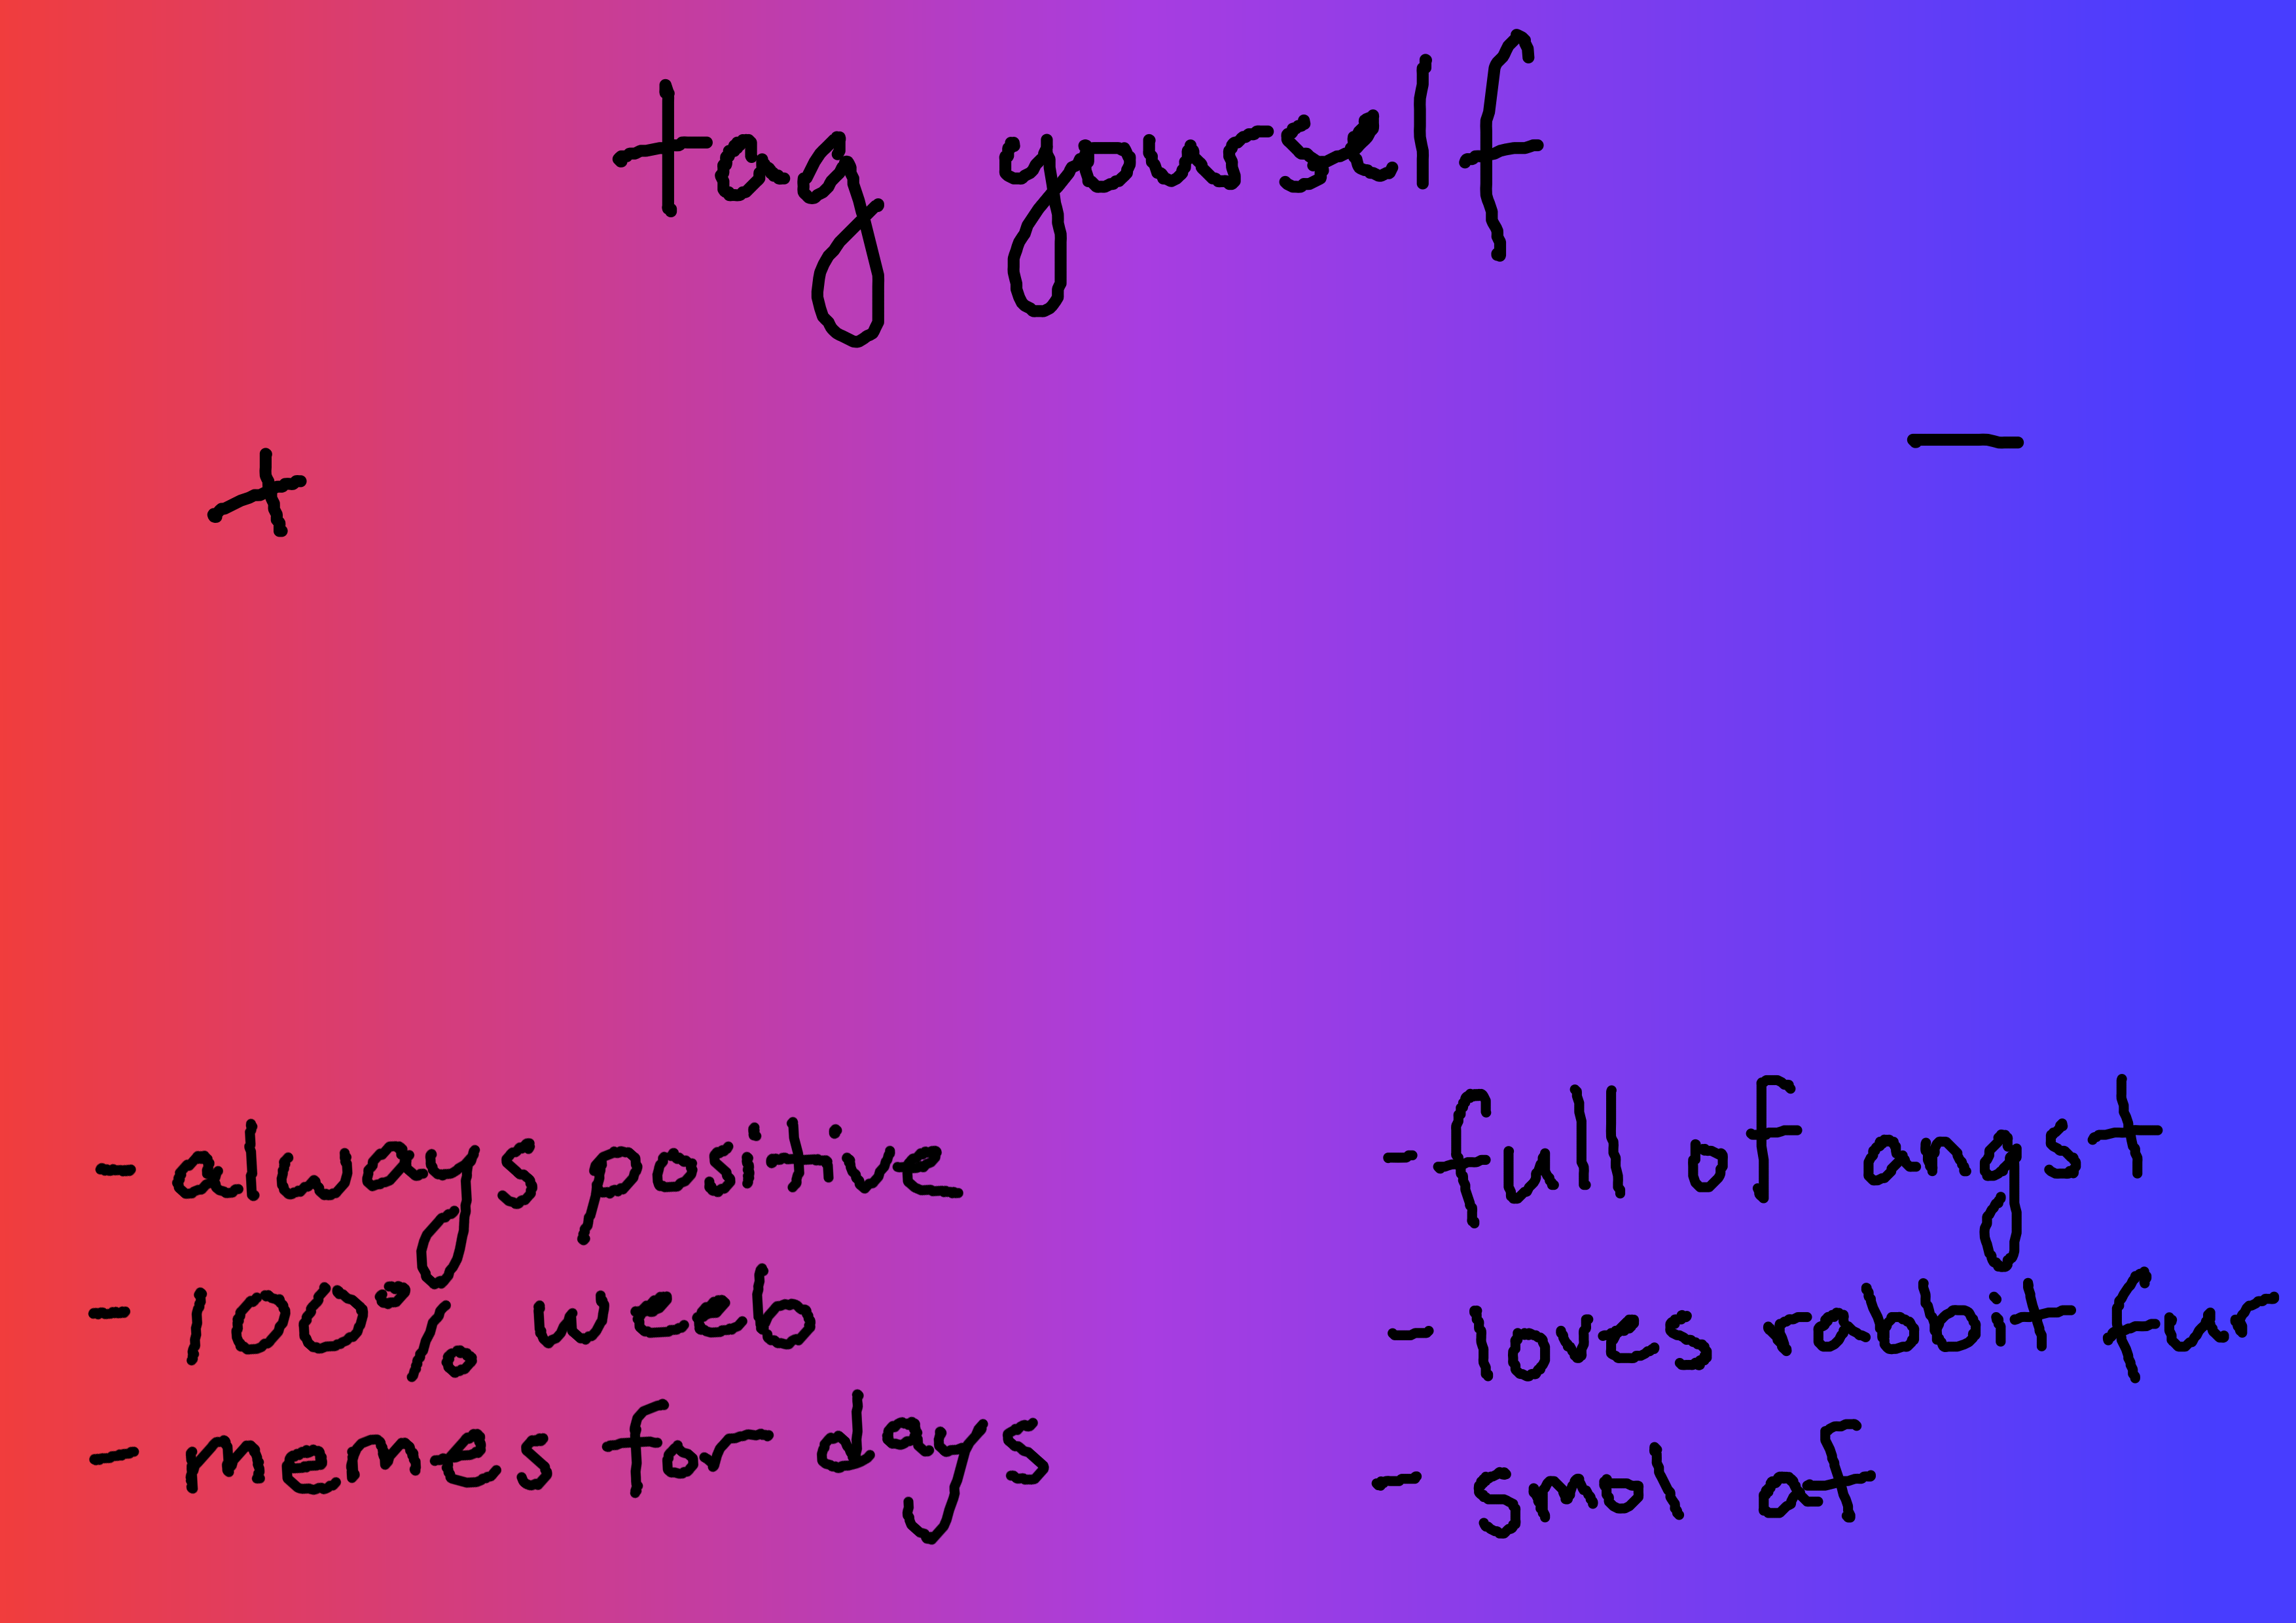 tag yourself
+
—
- always positive
- 100% weeb
- memes for days
- full of angst
- loves rabbit fur
- smol af